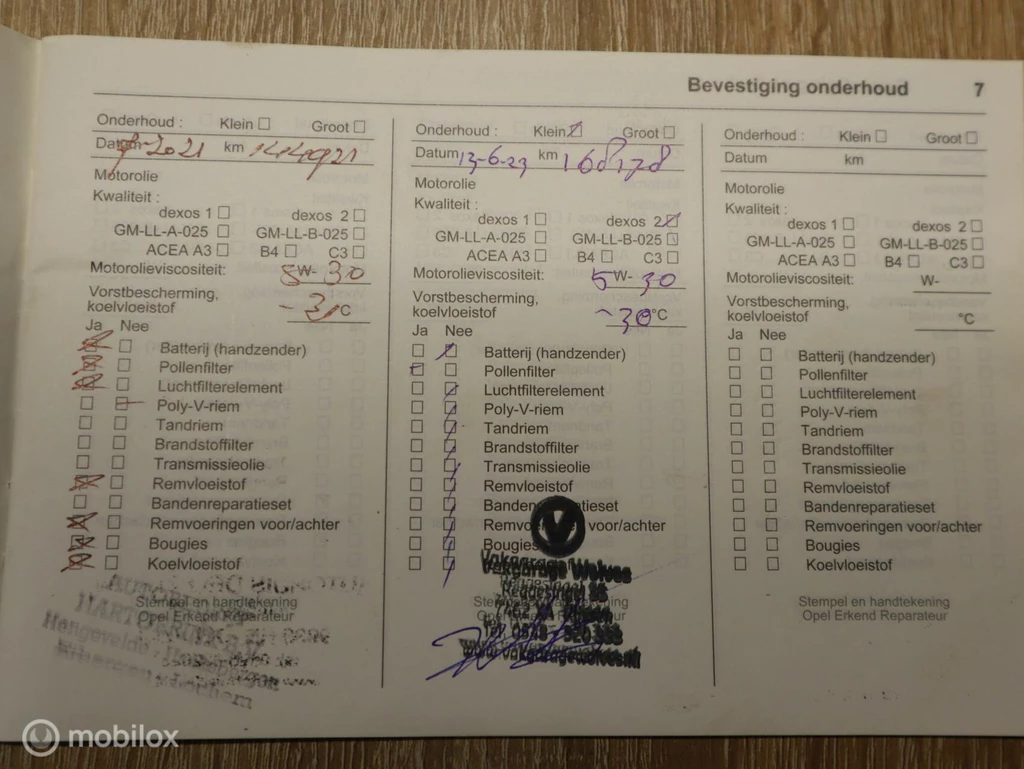 Bevestiging onderhoud 7
Onderhoud : Klein Groot
Datum 2021 km 144921
Motorolie
Kwaliteit :
dexos 1 dexos 2
GM-LL-A-025 GM-LL-B-025
ACEA A3 B4 C3
Motorolieviscositeit: 5W-30
Vorstbescherming,
koelvloeistof °C
Ja Nee
Batterij (handzender)
Pollenfilter
Luchtfilterelement
Poly-V-riem
Tandriem
Brandstoffilter
Transmissieolie
Remvloeistof
Bandenreparatieset
Remvoeringen voor/achter
Bougies
Koelvloeistof
Stempel en handtekening
Opel Erkend Reparateur
Onderhoud : Klein Groot
Datum 13-6-23 km 168178
Motorolie
Kwaliteit :
dexos 1 dexos 2
GM-LL-A-025 GM-LL-B-025
ACEA A3 B4 C3
Motorolieviscositeit: 5W-30
Vorstbescherming,
koelvloeistof -30°C
Ja Nee
Batterij (handzender)
Pollenfilter
Luchtfilterelement
Poly-V-riem
Tandriem
Brandstoffilter
Transmissieolie
Remvloeistof
Bandenreparatieset
Remvoeringen voor/achter
Bougies
Vakgarage Wolves
Onderhoud : Klein Groot
Datum km
Motorolie
Kwaliteit :
dexos 1 dexos 2
GM-LL-A-025 GM-LL-B-025
ACEA A3 B4 C3
Motorolieviscositeit: W-
Vorstbescherming,
koelvloeistof °C
Ja Nee
Batterij (handzender)
Pollenfilter
Luchtfilterelement
Poly-V-riem
Tandriem
Brandstoffilter
Transmissieolie
Remvloeistof
Bandenreparatieset
Remvoeringen voor/achter
Bougies
Koelvloeistof
Stempel en handtekening
Opel Erkend Reparateur
mobilox